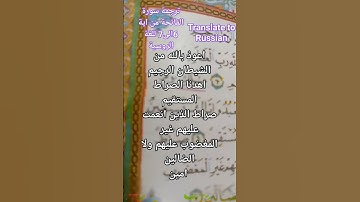 ترجمه سورة
الفاتحة من آية
6الى 7 للغه
الروسية
Translate to
Russian.
اعوذ بالله من
الشيطان الرجيم
اهدنا الصراط
المستقيم
صراط الذين أنعمت
عليهم غير
المغضوب عليهم ولا
الضالين
امين